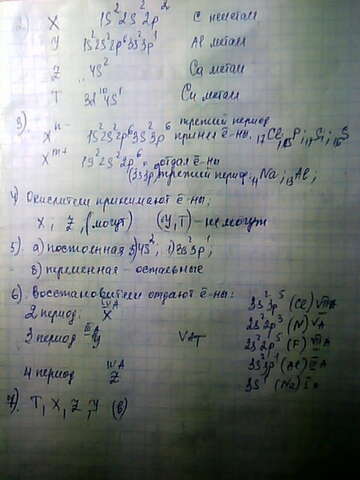 2) X 1S²2S²2p² C неметалл
Y 1S²2S²2p⁶3S²3p¹ Al металл
Z ..4S² Ca металл
T 3d¹⁰4S¹ Cu металл
третий период
3). Xⁿ⁻ 1S²2S²2p⁶3S²3p⁶ принял ē-ны. ₁₇Cl; P; Si; S
Xᵐ⁺ 1S²2S²2p⁶ отдал ē-ны
третий период ₁₁Na; ₁₃Al;
4) Окислители принимают ē-ны;
X; Z, (могут) (Y,T) - не могут
5). а) постоянная 4S²; 3S²3p¹;
б) переменная - остальные
6) Восстановители отдают ē-ны:
2 период: IVA X
3 период IIIA Y
4 период IVA Z
3S²3p⁵ (Cl) VIIA
2S²2p³ (N) VA
2S²2p⁵ (F) VIIA
3S²3p¹ (Al) IIIA
3S¹ (Na) I
7) T, X, Z, Y (в)